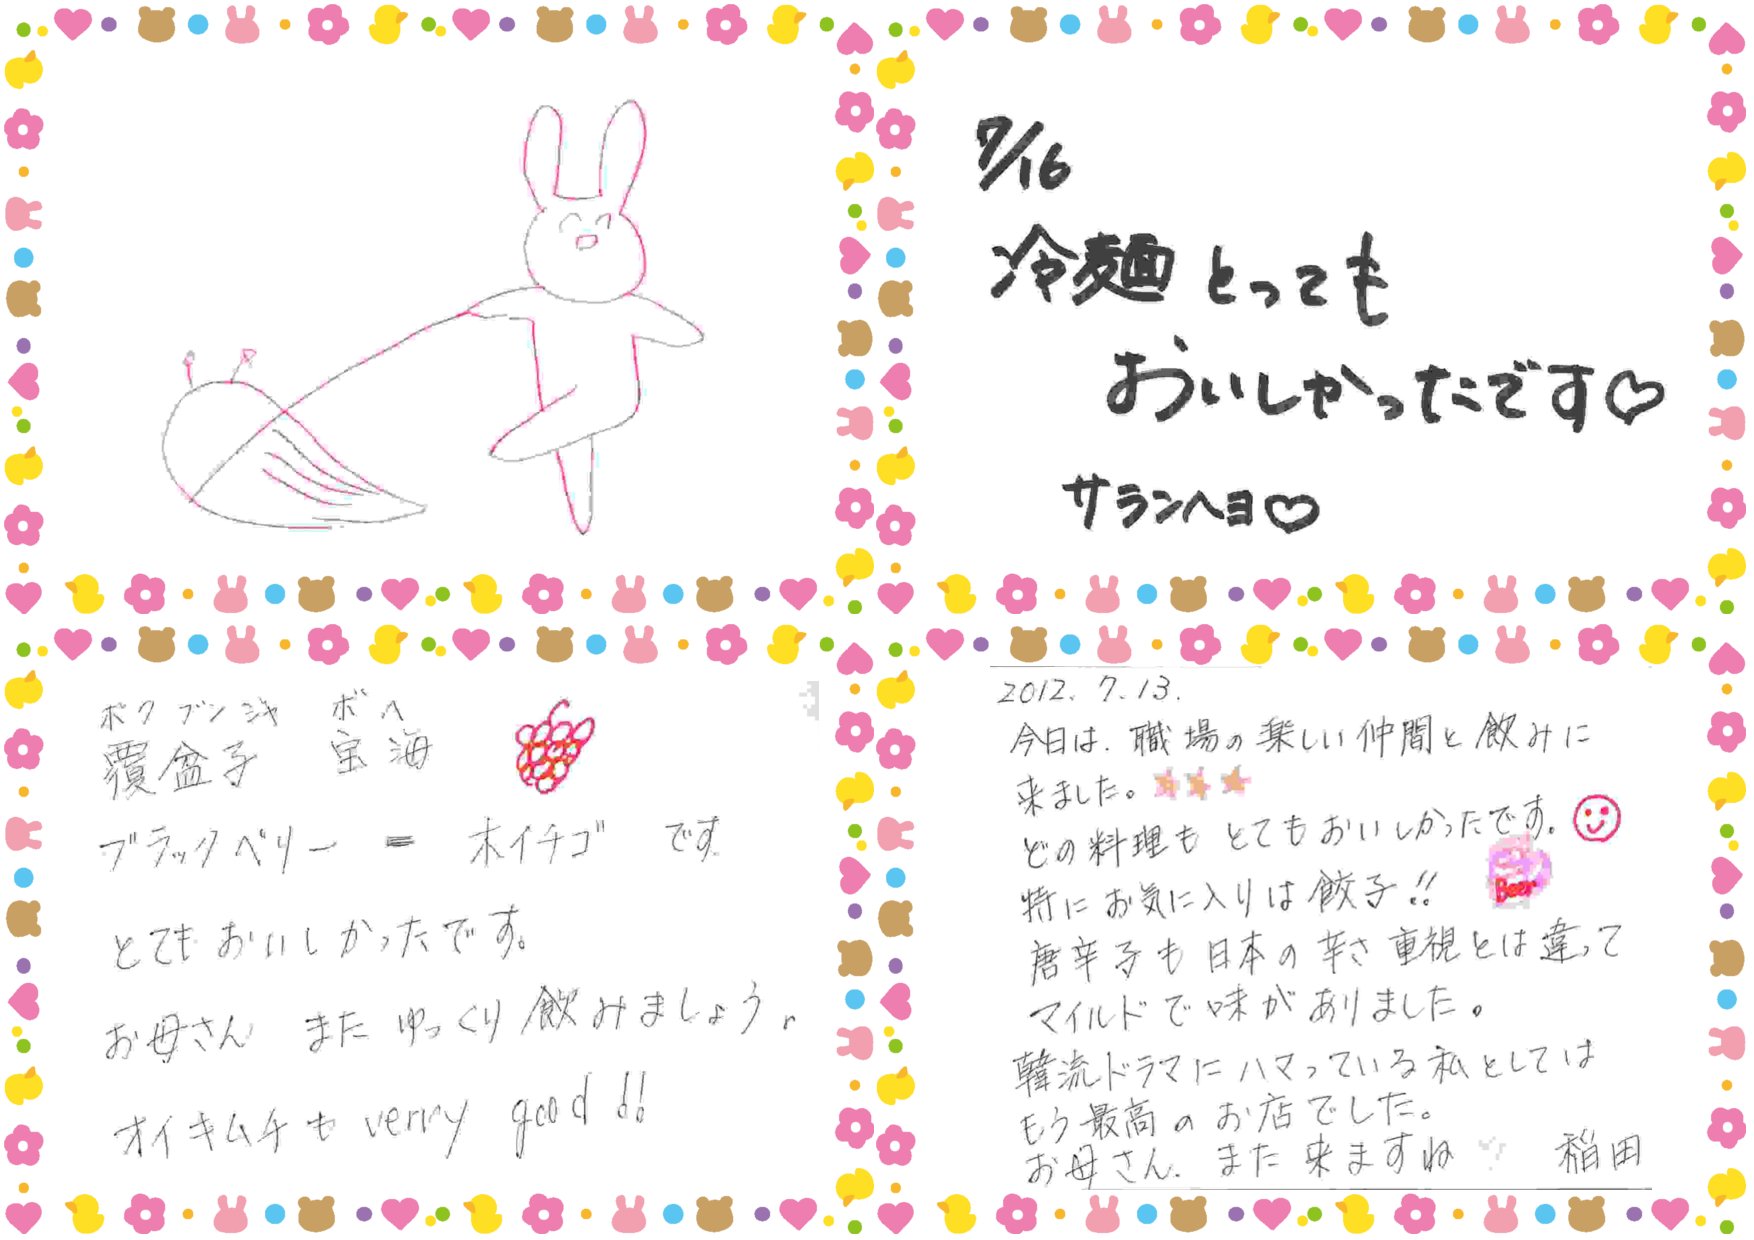 7/16
冷麺とっても
おいしかったです♡
サランヘヨ♡
ボクブンジャ ボヘ
覆盆子 宝海
ブラックベリー = 木イチゴ です
とてもおいしかったです。
お母さん また ゆっくり飲みましょう。
オイキムチも verry good !!
2012. 7. 13.
今日は、職場の楽しい仲間と飲みに
来ました。
どの料理もとてもおいしかったです。
特にお気に入りは餃子!!
Beer
唐辛子も日本の辛さ重視とは違って
マイルドで味がありました。
韓流ドラマにハマっている私としては
もう最高のお店でした。
お母さん、また来ますね 稲田